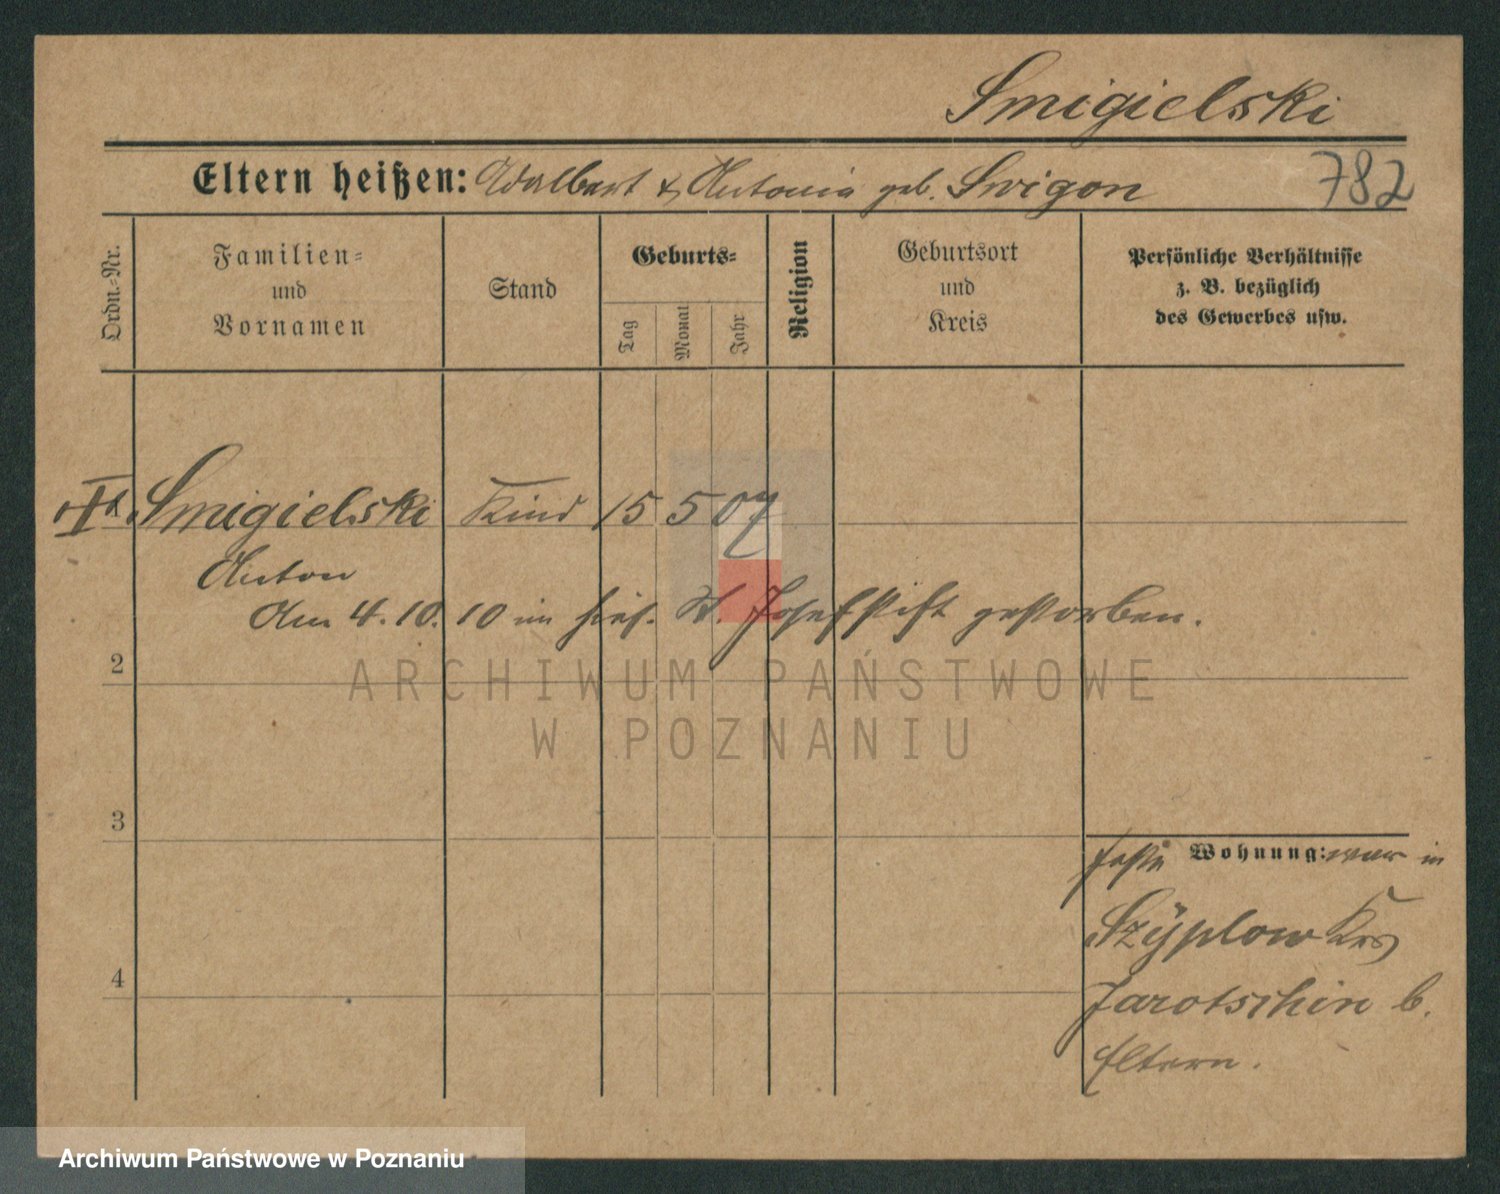 Smigielski
Eltern heißen: Adalbert & Antonia geb. Swigon 782
Ordn.-Nr.
Familien-
und
Vornamen
Stand
Geburts-
Tag
Monat
Jahr
Religion
Geburtsort
und
Kreis
Persönliche Verhältnisse
z. B. bezüglich
des Gewerbes usw.
Smigielski Kind 15 5 07
Anton
Am 4. 10. 10 im hies. St. Josefstift gestorben.
2
3
4
feste Wohnung: war in
Szÿplow Krs
Jarotschin b.
Eltern.
ARCHIWUM PAŃSTWOWE
W POZNANIU
Archiwum Państwowe w Poznaniu